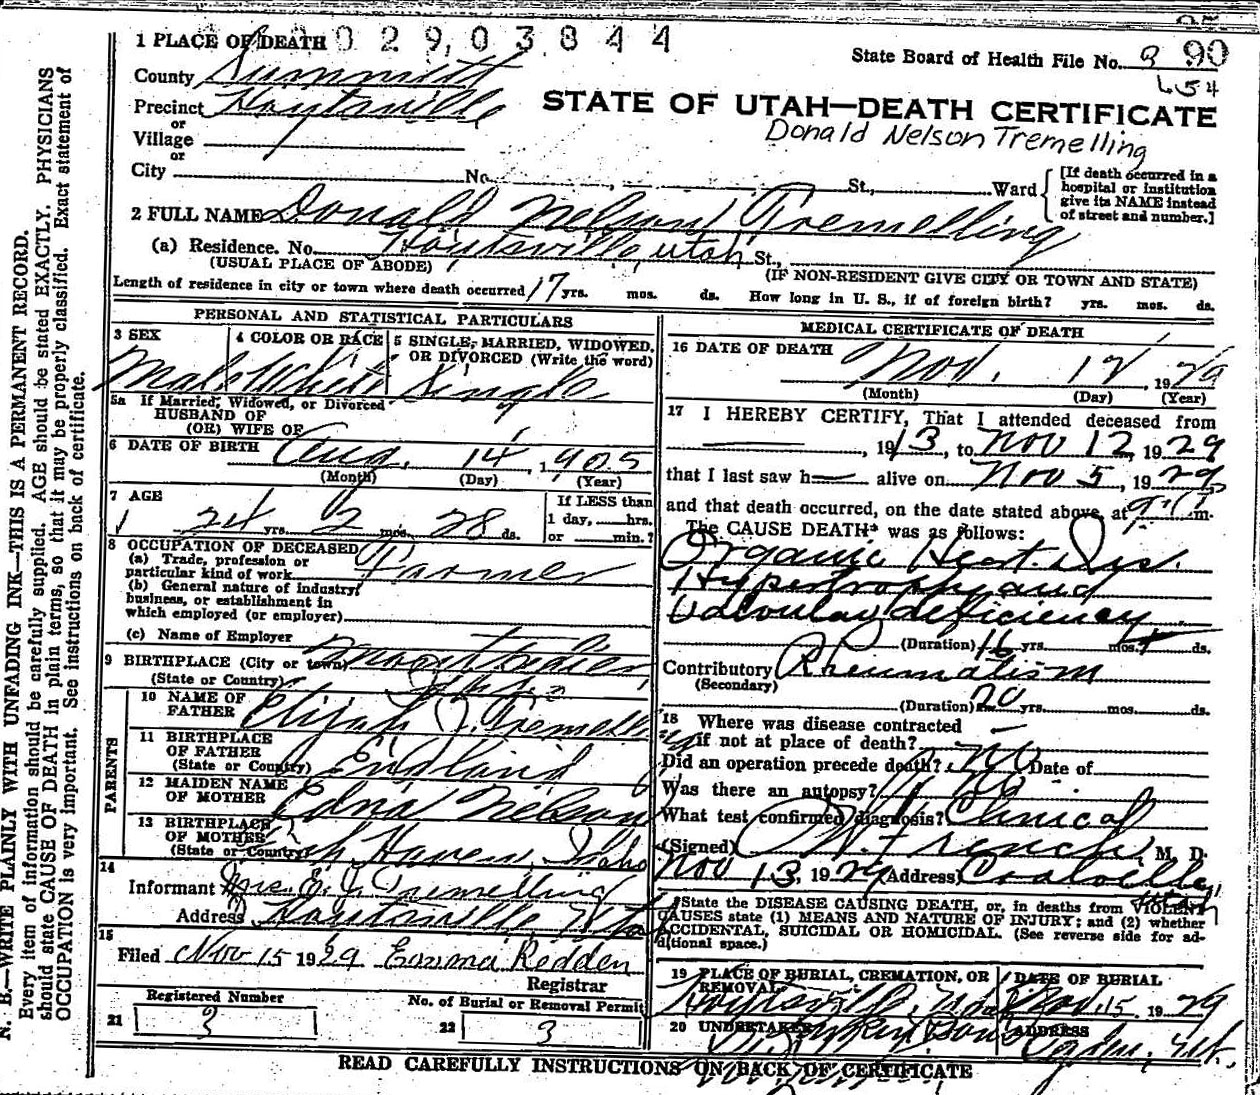 1 PLACE OF DEATH 0 2 9 0 3 8 4 4
State Board of Health File No. 90
654
County Summit
Precinct Hoytsville
or
Village
or
City No. St., Ward
STATE OF UTAH—DEATH CERTIFICATE
Donald Nelson Tremelling
[If death occurred in a
hospital or institution
give its NAME instead
of street and number.]
2 FULL NAME Donald Nelson Tremelling
(a) Residence. No. Hoytsville, Utah St.,
(USUAL PLACE OF ABODE) (IF NON-RESIDENT GIVE CITY OR TOWN AND STATE)
Length of residence in city or town where death occurred 17 yrs. mos. ds. How long in U. S., if of foreign birth? yrs. mos. ds.
PERSONAL AND STATISTICAL PARTICULARS
3 SEX
Male
4 COLOR OR RACE
White
5 SINGLE, MARRIED, WIDOWED,
OR DIVORCED (Write the word)
Single
5a If Married, Widowed, or Divorced
HUSBAND OF
(OR) WIFE OF
6 DATE OF BIRTH Aug. 14, 1905
(Month) (Day) (Year)
7 AGE
24 yrs. 2 mos. 28 ds.
If LESS than
1 day, hrs.
or min.?
8 OCCUPATION OF DECEASED
(a) Trade, profession or
particular kind of work Farmer
(b) General nature of industry,
business, or establishment in
which employed (or employer)
(c) Name of Employer
9 BIRTHPLACE (City or town) Montpelier
(State or Country) Idaho
PARENTS
10 NAME OF
FATHER Elijah J. Tremelling
11 BIRTHPLACE
OF FATHER
(State or Country) England
12 MAIDEN NAME
OF MOTHER Edna Nelson
13 BIRTHPLACE
OF MOTHER
(State or Country) Haven, Idaho
14
Informant Mrs. E. J. Tremelling
Address Hoytsville, Utah
15
Filed Nov 15 1929 Emma Redden
Registrar
Registered Number
21 3
No. of Burial or Removal Permit
22 3
MEDICAL CERTIFICATE OF DEATH
16 DATE OF DEATH
Nov. 12, 1929
(Month) (Day) (Year)
17 I HEREBY CERTIFY, That I attended deceased from
, 1913, to Nov 12, 1929
that I last saw h alive on Nov 5, 1929
and that death occurred, on the date stated above, at m.
The CAUSE DEATH* was as follows:
Organic Heart Dis.
Hypertrophy and
Valvular deficiency
(Duration) 16 yrs. mos. ds.
Contributory Rheumatism
(Secondary)
(Duration) 20 yrs. mos. ds.
18 Where was disease contracted
if not at place of death?
Did an operation precede death? No Date of
Was there an autopsy? No
What test confirmed diagnosis? Clinical
(Signed) French, M. D.
Nov 13, 1929 (Address) Coalville
Utah
*State the DISEASE CAUSING DEATH, or, in deaths from VIOLENT
CAUSES state (1) MEANS AND NATURE OF INJURY; and (2) whether
ACCIDENTAL, SUICIDAL OR HOMICIDAL. (See reverse side for ad-
ditional space.)
19 PLACE OF BURIAL, CREMATION, OR
REMOVAL
Hoytsville, Utah
DATE OF BURIAL
Nov. 15, 1929
20 UNDERTAKER
ADDRESS
Ogden, Ut.
READ CAREFULLY INSTRUCTIONS ON BACK OF CERTIFICATE
N. B.—WRITE PLAINLY WITH UNFADING INK—THIS IS A PERMANENT RECORD.
Every item of information should be carefully supplied. AGE should be stated EXACTLY. PHYSICIANS
should state CAUSE OF DEATH in plain terms, so that it may be properly classified. Exact statement of
OCCUPATION is very important. See instructions on back of certificate.